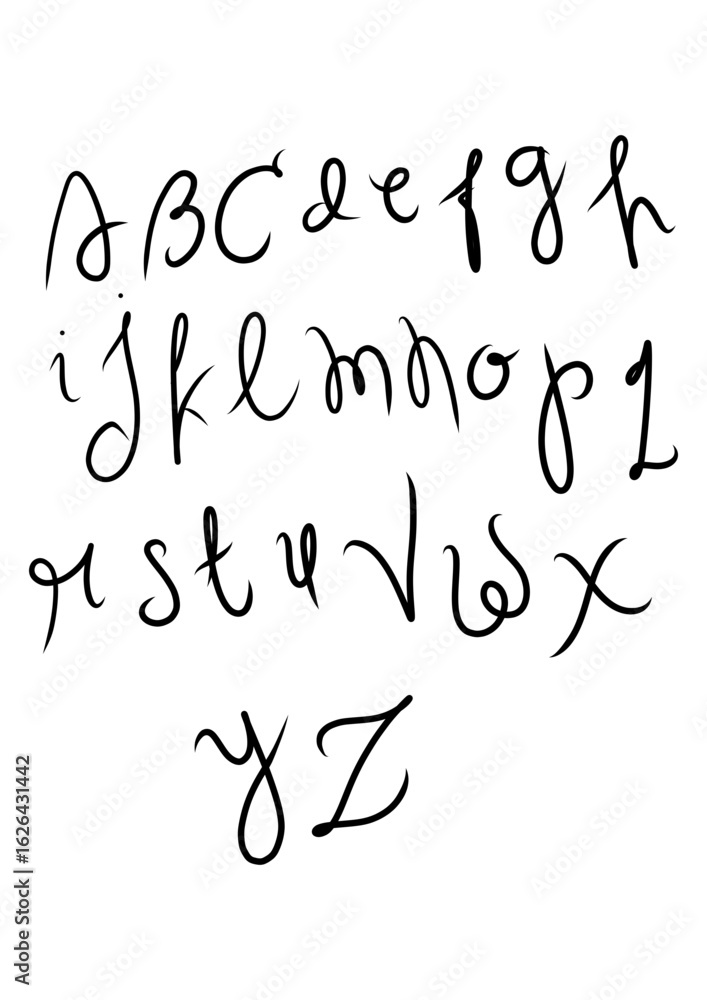 A B C d e f g h
i j k l m n o p q
r s t u v w x
y z
Adobe Stock | #1626431442